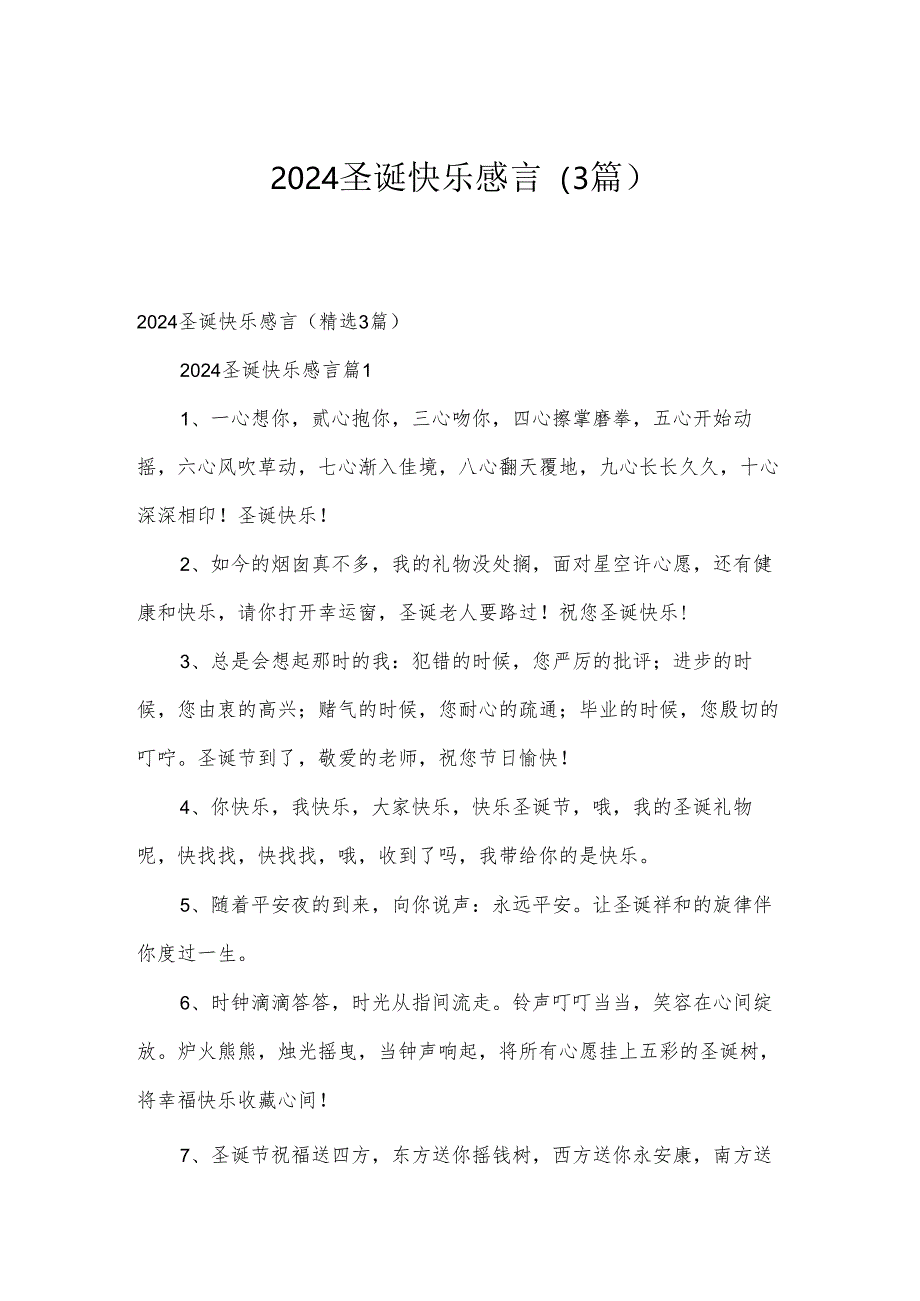 2024圣诞快乐感言（3篇）
2024圣诞快乐感言（精选3篇）
2024圣诞快乐感言篇1
1、一心想你，贰心抱你，三心吻你，四心擦掌磨拳，五心开始动
摇，六心风吹草动，七心渐入佳境，八心翻天覆地，九心长长久久，十心
深深相印！圣诞快乐！
2、如今的烟囱真不多，我的礼物没处搁，面对星空许心愿，还有健
康和快乐，请你打开幸运窗，圣诞老人要路过！祝您圣诞快乐！
3、总是会想起那时的我：犯错的时候，您严厉的批评；进步的时
候，您由衷的高兴；赌气的时候，您耐心的疏通；毕业的时候，您殷切的
叮咛。圣诞节到了，敬爱的老师，祝您节日愉快！
4、你快乐，我快乐，大家快乐，快乐圣诞节，哦，我的圣诞礼物
呢，快找找，快找找，哦，收到了吗，我带给你的是快乐。
5、随着平安夜的到来，向你说声：永远平安。让圣诞祥和的旋律伴
你度过一生。
6、时钟滴滴答答，时光从指间流走。铃声叮叮当当，笑容在心间绽
放。炉火熊熊，烛光摇曳，当钟声响起，将所有心愿挂上五彩的圣诞树，
将幸福快乐收藏心间！
7、圣诞节祝福送四方，东方送你摇钱树，西方送你永安康，南方送